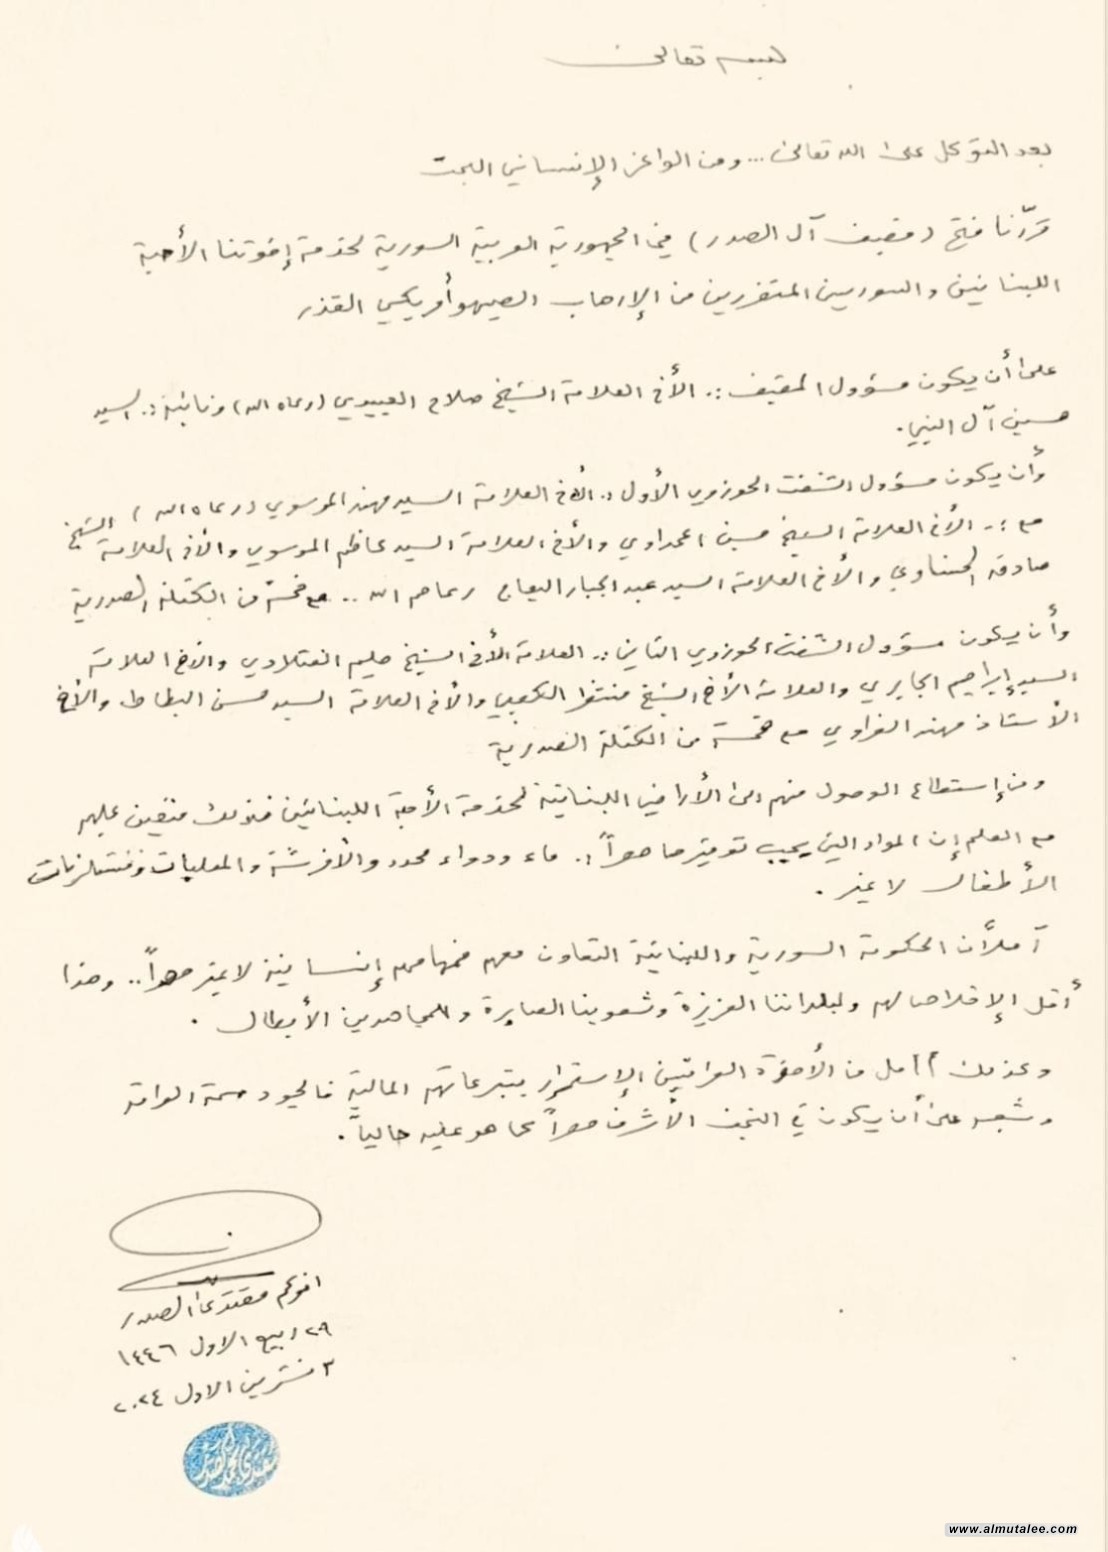 بسمه تعالى
بعد التوكل على الله تعالى... ومن الواعز الإنساني البحت
قرّرنا فتح (مضيف آل الصدر) في الجمهورية العربية السورية لخدمة إخوتنا الأحبة
اللبنانيين والسوريين المتضررين من الإرهاب الصيهوأمريكي القذر
على أن يكون مسؤول المضيف :. الأخ العلامة الشيخ صلاح العبيدي (رعاه الله) ونائبه :. السيد
حسين آل النبي.
وأن يكون مسؤول الشفت الحوزوي الأول :. الأخ العلامة السيد مهند الموسوي (رعاه الله)
مع :. الأخ العلامة الشيخ حسين المحمداوي والأخ العلامة السيد كاظم الموسوي والأخ العلامة الشيخ
صادق الحسناوي والأخ العلامة السيد عبد الجبار رعاهم الله .. مع خمسة من الكتلة الصدرية
وأن يكون مسؤول الشفت الحوزوي الثاني :. العلامة الأخ الشيخ حليم الفتلاوي والأخ العلامة
السيد إبراهيم الجابري والعلامة الأخ الشيخ منتظر الكعبي والأخ العلامة السيد حسن البطاط والأخ
الأستاذ مهند الغراوي مع خمسة من الكتلة الصدرية
ومن إستطاع الوصول منهم الى الأراضي اللبنانية لخدمة الأحبة اللبنانيين فذلك متعين عليهم
مع العلم إن المواد التي يجب توفيرها حصراً :. ماء ودواء محدد والأفرشة والمعلبات ومستلزمات
الأطفال لا غير .
آملاً أن الحكومة السورية واللبنانية التعاون معهم فمهامهم إنسانية لا غير حصراً .. وهذا
أقل الإخلاص لهم ولبلداننا العزيزة وشعوبنا الصابرة والمجاهدين الأبطال .
وعندئذ آمل من الأخوة العراقيين الإستمرار بتبرعاتهم المالية فالجود سمة العراق
وشعبه على أن يكون في النجف الأشرف حصراً كما هو عليه حالياً .
اخوكم مقتدى الصدر
٢٩ ربيع الاول ١٤٤٦
٣ تشرين الاول ٢٠٢٤
www.almutalee.com